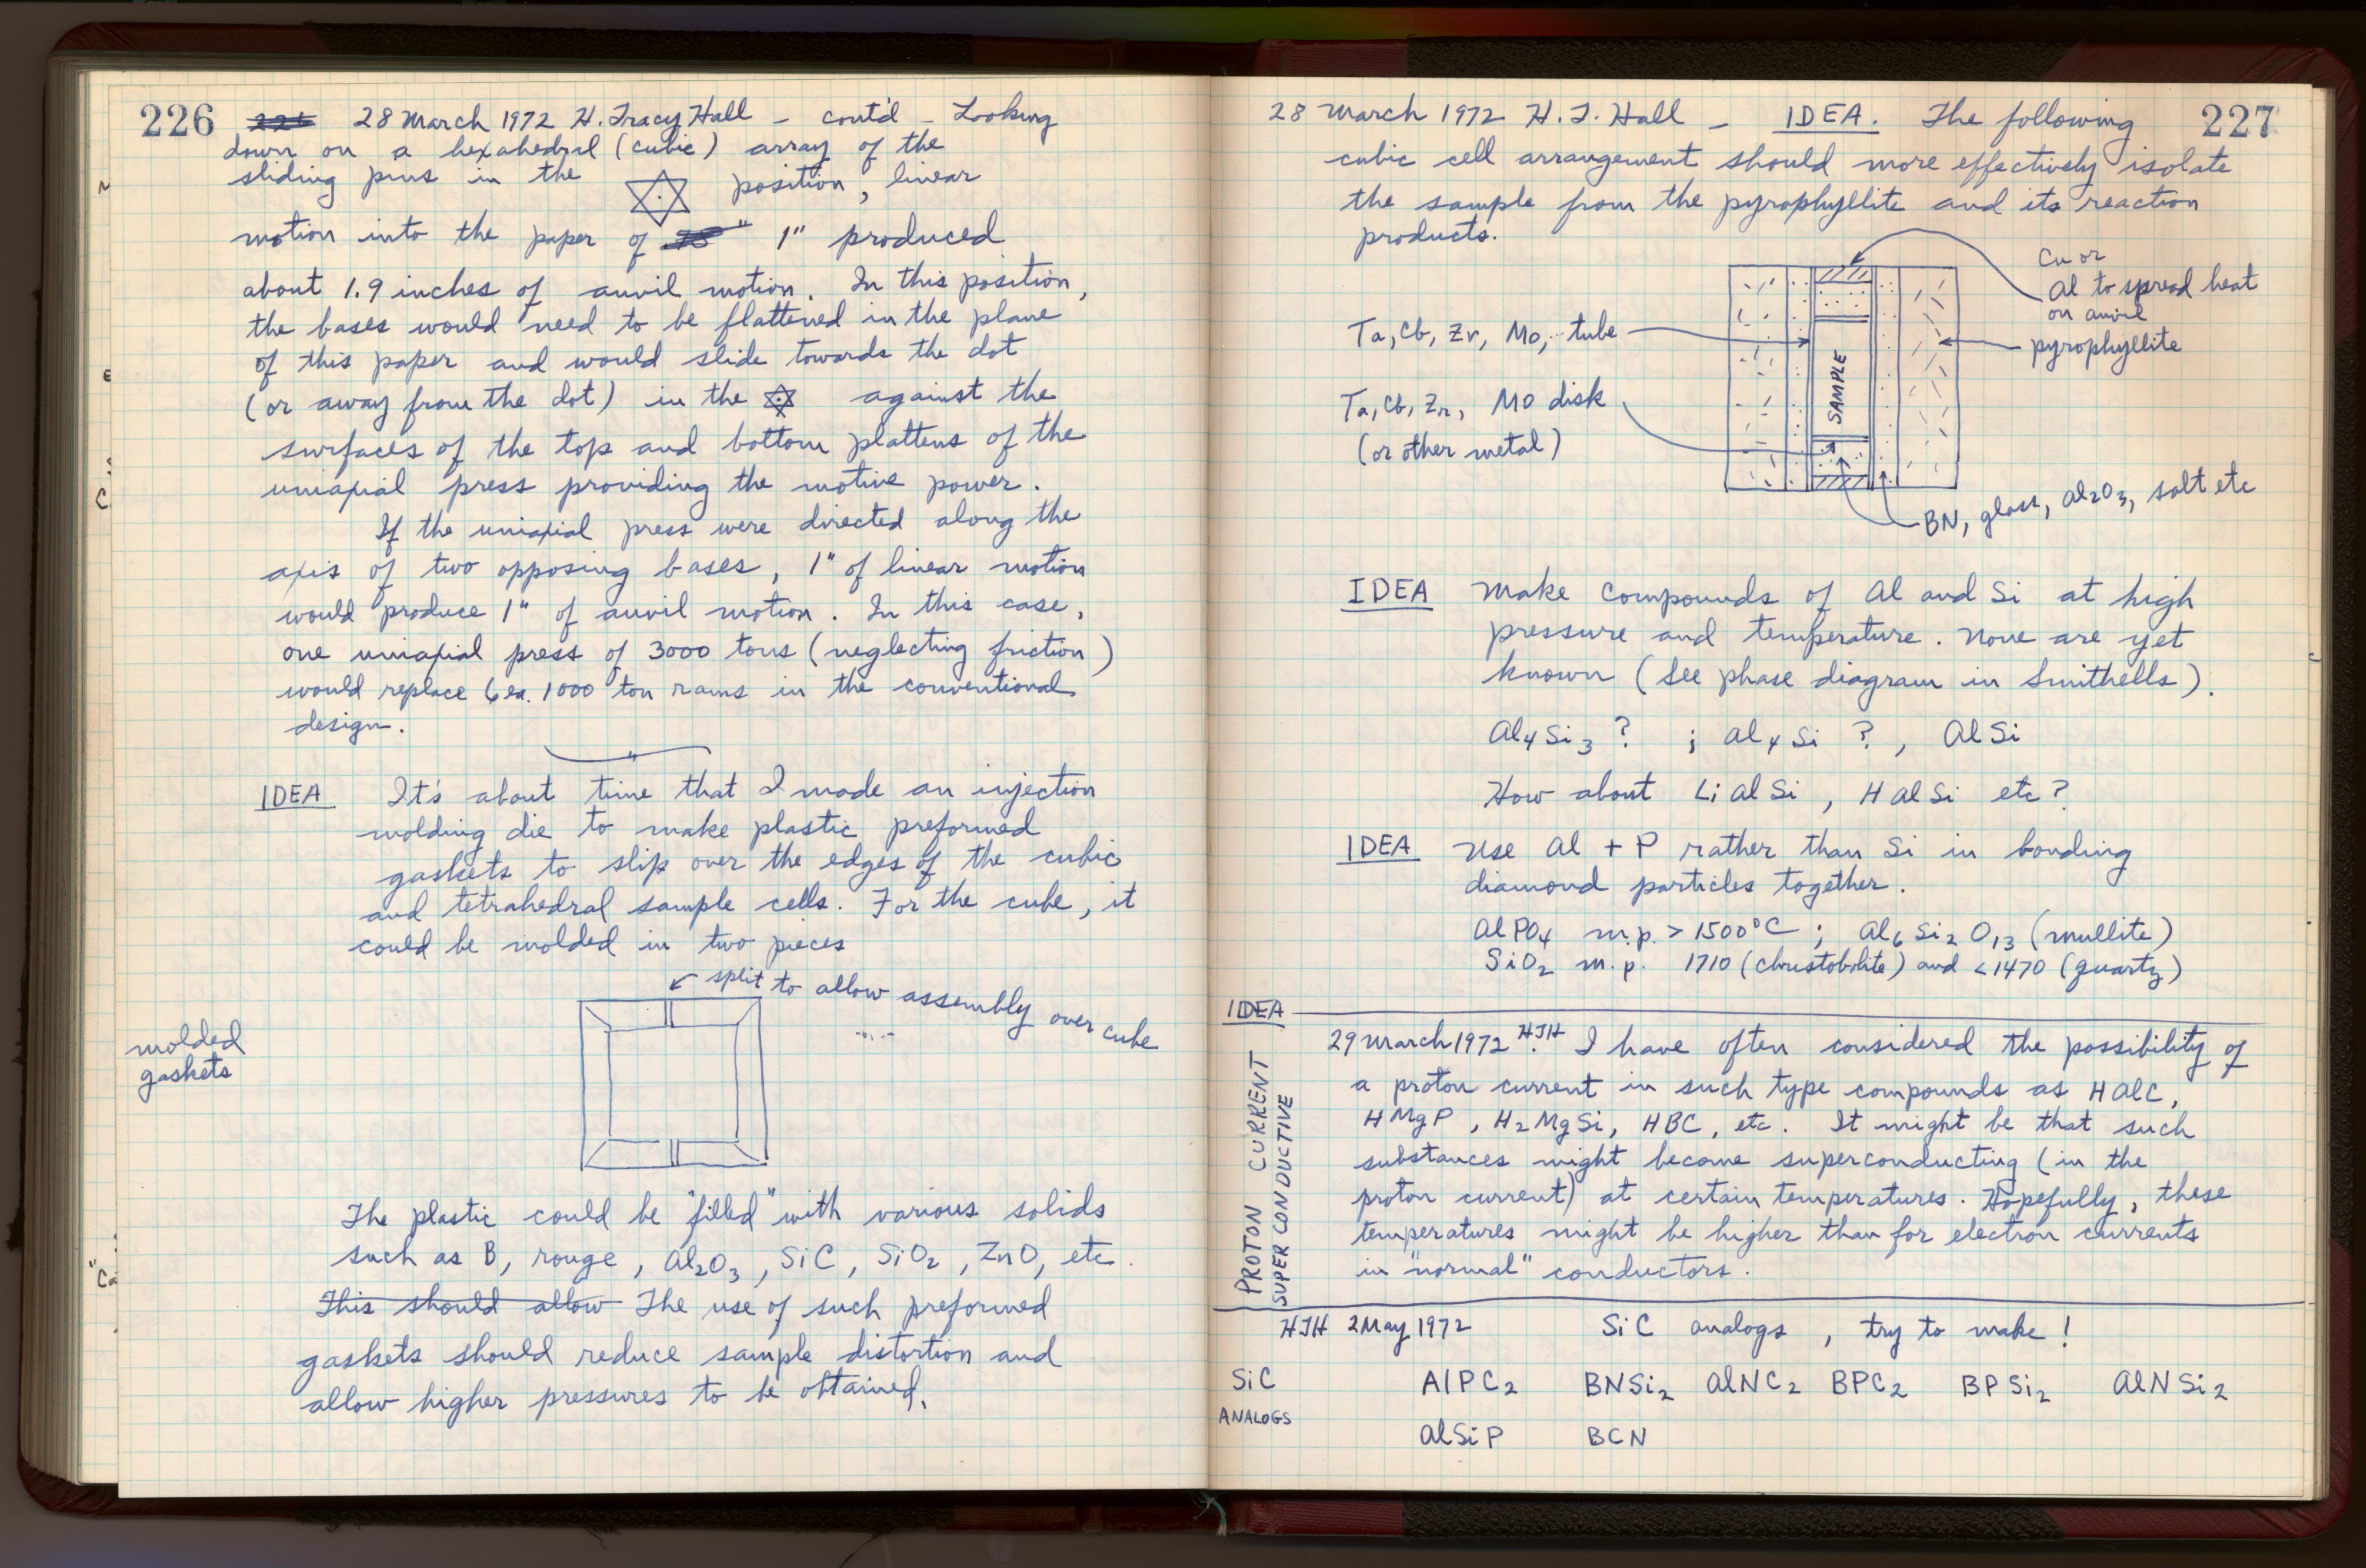 226 28 March 1972 H. Tracy Hall - cont'd - Looking
down on a hexahedral (cubic) array of the
sliding pins in the position, linear
motion into the paper of 1" produced
about 1.9 inches of anvil motion. In this position,
the bases would need to be flattened in the plane
of this paper and would slide towards the dot
(or away from the dot) in the against the
surfaces of the top and bottom plattens of the
uniaxial press providing the motive power.
If the uniaxial press were directed along the
axis of two opposing bases, 1" of linear motion
would produce 1" of anvil motion. In this case,
one uniaxial press of 3000 tons (neglecting friction)
would replace 6 ea. 1000 ton rams in the conventional
design.
IDEA It's about time that I made an injection
molding die to make plastic preformed
gaskets to slip over the edges of the cubic
and tetrahedral sample cells. For the cube, it
could be molded in two pieces
split to allow assembly over cube
molded
gaskets
The plastic could be "filled" with various solids
such as B, rouge, Al2O3, SiC, SiO2, ZnO, etc.
This should allow The use of such preformed
gaskets should reduce sample distortion and
allow higher pressures to be obtained.
28 March 1972 H. T. Hall - IDEA. The following 227
cubic cell arrangement should more effectively isolate
the sample from the pyrophyllite and its reaction
products.
Cu or
Al to spread heat
on anvil
Ta, Cb, Zr, Mo, tube
pyrophyllite
SAMPLE
Ta, Cb, Zr, Mo disk
(or other metal)
BN, glass, Al2O3, salt etc
IDEA Make compounds of Al and Si at high
pressure and temperature. None are yet
known (see phase diagram in Smithells).
Al4Si3 ? ; Al4Si ?, AlSi
How about LiAlSi, HAlSi etc?
IDEA Use Al + P rather than Si in bonding
diamond particles together.
AlPO4 m.p. > 1500°C ; Al6Si2O13 (mullite)
SiO2 m.p. 1710 (christobolite) and <1470 (quartz)
IDEA
PROTON CURRENT
SUPER CONDUCTIVE
29 March 1972 HTH. I have often considered the possibility of
a proton current in such type compounds as HAlC,
HMgP, H2MgSi, HBC, etc. It might be that such
substances might become superconducting (in the
proton current) at certain temperatures. Hopefully, these
temperatures might be higher than for electron currents
in "normal" conductors.
HTH 2 May 1972 SiC analogs, try to make!
SiC
ANALOGS
AlPC2 BNSi2 AlNC2 BPC2 BPSi2 AlNSi2
AlSiP BCN